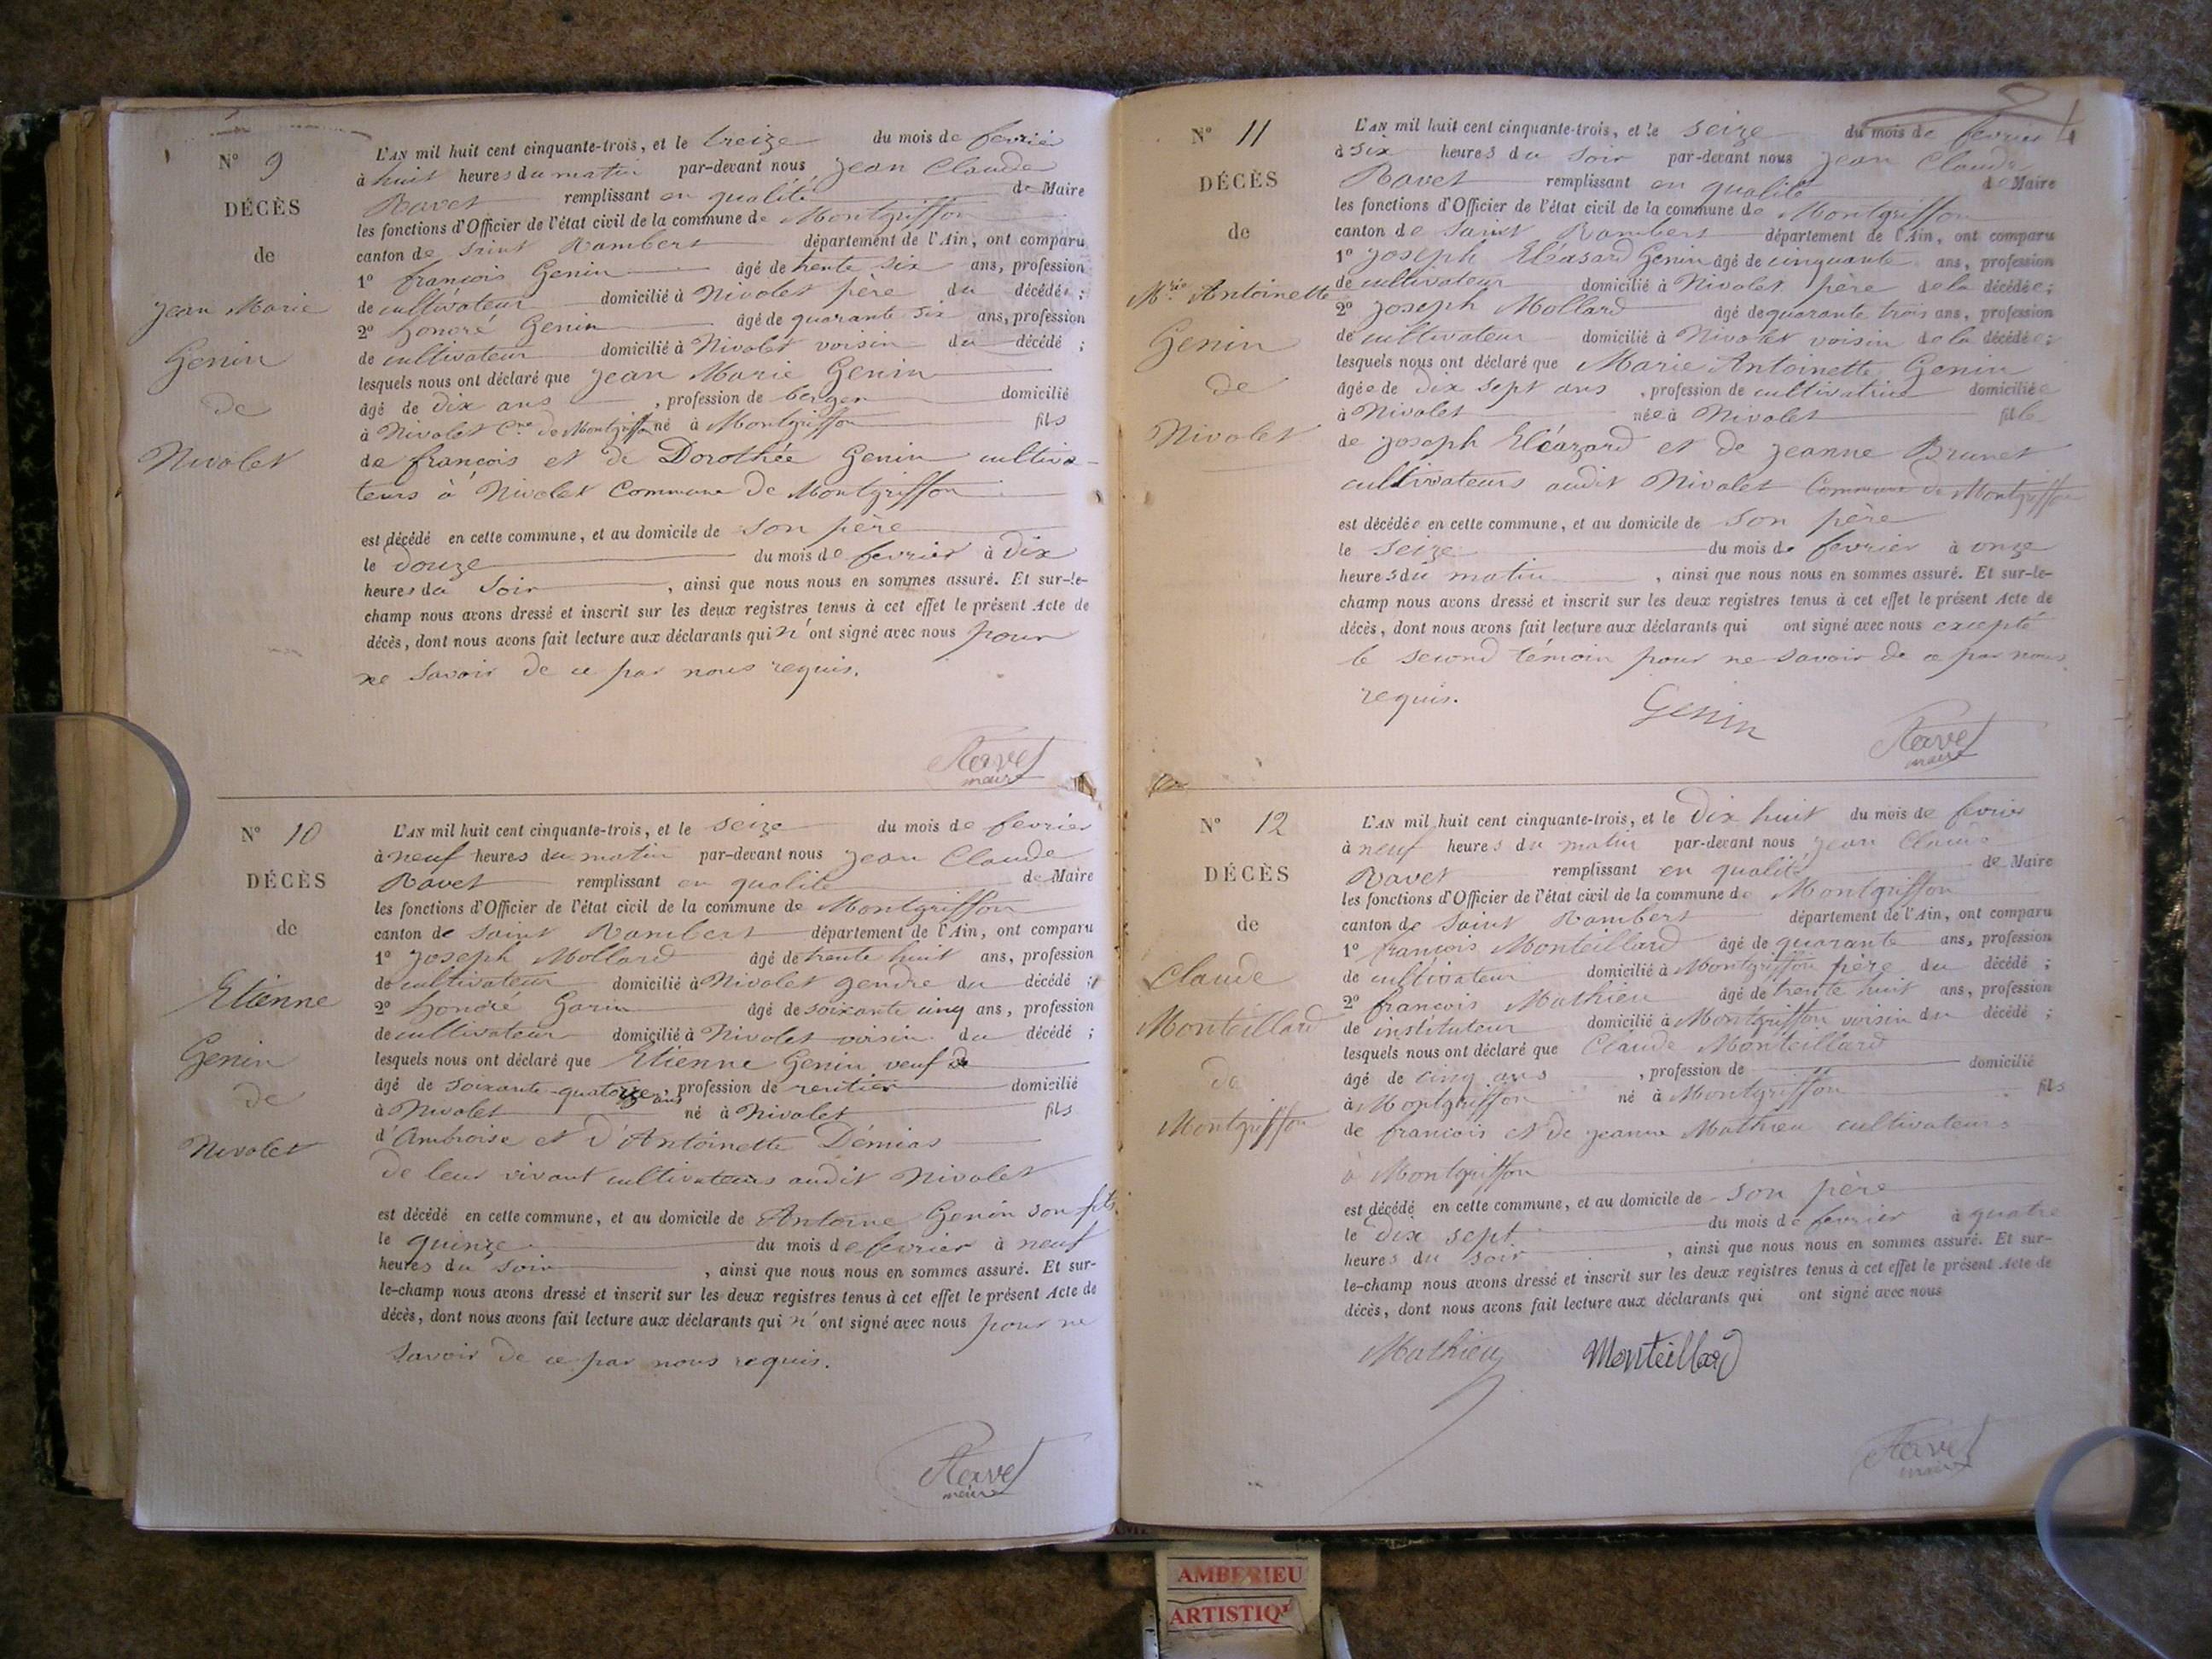 N° 9
DÉCÈS
de
Jean Marie
Genin
de
Nivolet
L'AN mil huit cent cinquante-trois, et le treize du mois de fevrier
à huit heures du matin par-devant nous Jean Claude
Ravet remplissant en qualité de Maire
les fonctions d'Officier de l'état civil de la commune de Montgriffon
canton de Saint Rambert département de l'Ain, ont comparu
1° francois Genin âgé de trente six ans, profession
de cultivateur domicilié à Nivolet père du décédé ;
2° honoré Genin âgé de quarante six ans, profession
de cultivateur domicilié à Nivolet voisin du décédé ;
lesquels nous ont déclaré que Jean Marie Genin
âgé de dix ans , profession de berger domicilié
à Nivolet Cne de Montgriffon né à Montgriffon fils
de francois et de Dorothée Genin cultiva-
teurs à Nivolet Commune de Montgriffon
est décédé en cette commune, et au domicile de son père
le douze du mois de fevrier à dix
heures du soir , ainsi que nous nous en sommes assuré. Et sur-le-
champ nous avons dressé et inscrit sur les deux registres tenus à cet effet le présent Acte de
décès, dont nous avons fait lecture aux déclarants qui n'ont signé avec nous pour
ne savoir de ce par nous requis.
Ravet
maire
N° 10
DÉCÈS
de
Etienne
Genin
de
Nivolet
L'AN mil huit cent cinquante-trois, et le seize du mois de fevrier
à neuf heures du matin par-devant nous Jean Claude
Ravet remplissant en qualité de Maire
les fonctions d'Officier de l'état civil de la commune de Montgriffon
canton de Saint Rambert département de l'Ain, ont comparu
1° Joseph Mollard âgé de trente huit ans, profession
de cultivateur domicilié à Nivolet gendre du décédé ;
2° honoré Garin âgé de soixante cinq ans, profession
de cultivateur domicilié à Nivolet voisin du décédé ;
lesquels nous ont déclaré que Etienne Genin veuf de
âgé de soixante-quatorze ans, profession de rentier domicilié
à Nivolet né à Nivolet fils
d'Ambroise et d'Antoinette Démias
de leur vivant cultivateurs audit Nivolet
est décédé en cette commune, et au domicile de Antoine Genin son fils
le quinze du mois de fevrier à neuf
heures du soir , ainsi que nous nous en sommes assuré. Et sur-
le-champ nous avons dressé et inscrit sur les deux registres tenus à cet effet le présent Acte de
décès, dont nous avons fait lecture aux déclarants qui n'ont signé avec nous pour ne
savoir de ce par nous requis.
Ravet
maire
N° 11
DÉCÈS
de
Mrie Antoinette
Genin
de
Nivolet
L'AN mil huit cent cinquante-trois, et le seize du mois de fevrier
à six heures du soir par-devant nous Jean Claude
Ravet remplissant en qualité de Maire
les fonctions d'Officier de l'état civil de la commune de Montgriffon
canton de Saint Rambert département de l'Ain, ont comparu
1° Joseph Eléasard Genin âgé de cinquante ans, profession
de cultivateur domicilié à Nivolet père de la décédée ;
2° Joseph Mollard âgé de quarante trois ans, profession
de cultivateur domicilié à Nivolet voisin de la décédée ;
lesquels nous ont déclaré que Marie Antoinette Genin
âgée de dix sept ans , profession de cultivatrice domiciliée
à Nivolet née à Nivolet fille
de Joseph Eléazard et de Jeanne Brunet
cultivateurs audit Nivolet Commune de Montgriffon
est décédée en cette commune, et au domicile de son père
le seize du mois de fevrier à onze
heures du matin , ainsi que nous nous en sommes assuré. Et sur-le-
champ nous avons dressé et inscrit sur les deux registres tenus à cet effet le présent Acte de
décès, dont nous avons fait lecture aux déclarants qui ont signé avec nous excepté
le second témoin pour ne savoir de ce par nous
requis.
Genin
Ravet
maire
N° 12
DÉCÈS
de
Claude
Monteillard
de
Montgriffon
L'AN mil huit cent cinquante-trois, et le dix huit du mois de fevrier
à neuf heures du matin par-devant nous Jean Claude
Ravet remplissant en qualité de Maire
les fonctions d'Officier de l'état civil de la commune de Montgriffon
canton de Saint Rambert département de l'Ain, ont comparu
1° francois Monteillard âgé de quarante ans, profession
de cultivateur domicilié à Montgriffon père du décédé ;
2° francois Mathieu âgé de trente huit ans, profession
de instituteur domicilié à Montgriffon voisin du décédé ;
lesquels nous ont déclaré que Claude Monteillard
âgé de cinq ans , profession de domicilié
à Montgriffon né à Montgriffon fils
de francois et de Jeanne Mathieu cultivateurs
à Montgriffon
est décédé en cette commune, et au domicile de son père
le dix sept du mois de fevrier à quatre
heures du soir , ainsi que nous nous en sommes assuré. Et sur-
le-champ nous avons dressé et inscrit sur les deux registres tenus à cet effet le présent Acte de
décès, dont nous avons fait lecture aux déclarants qui ont signé avec nous
Mathieu Monteillard
Ravet
maire
AMBERIEU
ARTISTIQ